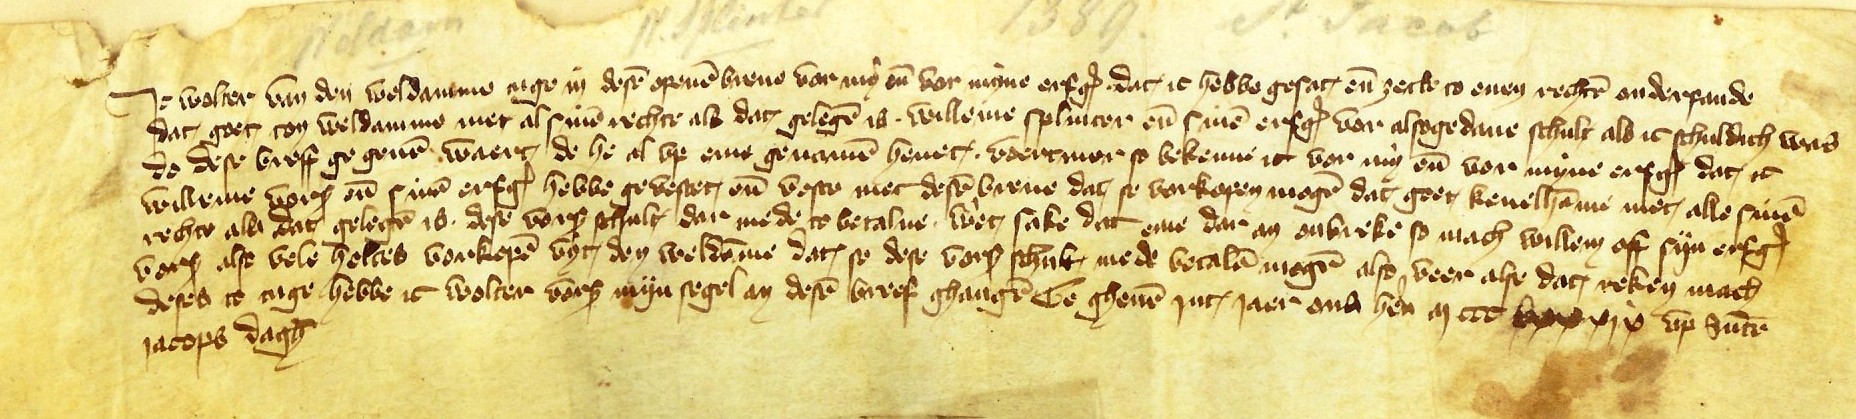 Weldam W. Splinter 1389. St. Jacob
Ic wolter van den weldamme tuge in desē openē brieue vor mȳ en̄ vor mijne erfḡ dat ic hebbe gesat en̄ zecte to enen rechtē onderpande
dat goet ton weldamme met al sinē rechte als dat gelegē is. willeme splinter en̄ sinē erfḡ vor alsogedane schult als ic schuldich was
do dese breff ge geuē waert de he al vp eme genamē heuet. voertmer so bekenne ic vor mȳ en̄ vor mijne erfḡ dat ic
willeme vorß en̄ sinē erfḡ hebbe geuestet en̄ veste met desē brieue dat se vorkopen mogē dat goet keuelhāme met alle sinē
rechte als dat gelegē is. dese vorß schult dar mede to betalne. weret sake dat eme dar an onbreke so mach willem off sijn erfḡ
vorß also vele holtes vorkopē vyt den weldāme dat se dese vorß schult mede betalē mogē also veer also dat reken mach
deses to tuge hebbe ic wolter vorß mijn segel an desē breef ghangē Ge gheuē int jaer ons herē m ccc up sūte
jacops dagh